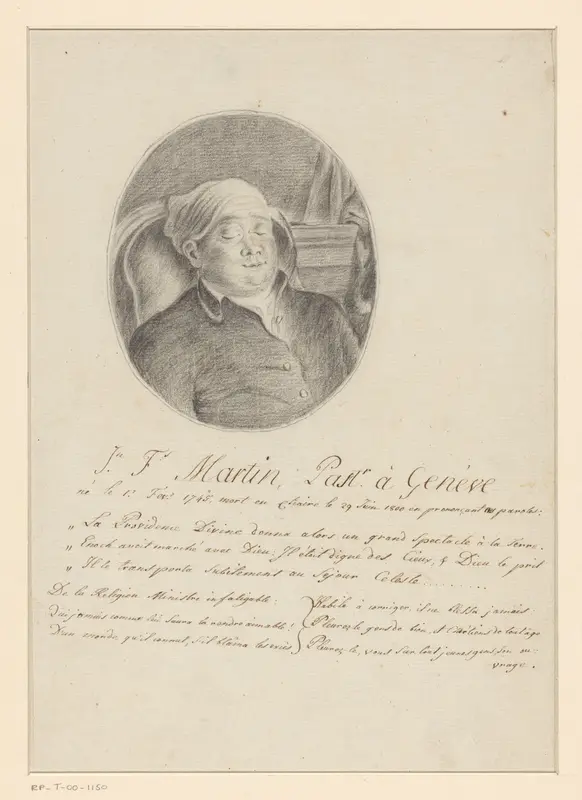 Jn. Fs. Martin, Pastr. à Genève
né le 1r. Fév. 1745, mort en Chaire le 29 Juin 1810 en prononçant ces paroles:
„ La Providence Divine donna alors un grand Spectacle à la Terre.
„ Enoch avoit marché avec Dieu: Il étoit digne des Cieux, & Dieu le prit
„ Il le transporta subitement au Séjour Céleste........
De la Religion Ministre infatigable:
Qui jamais comme lui sçeut la rendre aimable!
D'un monde, qu'il connut, s'il blâma les vices
Habile à corriger, il ne blessa jamais
Pleurez-le gens de bien, et Chrétiens de tout âge
Pleurez-le, vous surtout jeunes gens, son ou-
vrage.
RP-T-00-1150